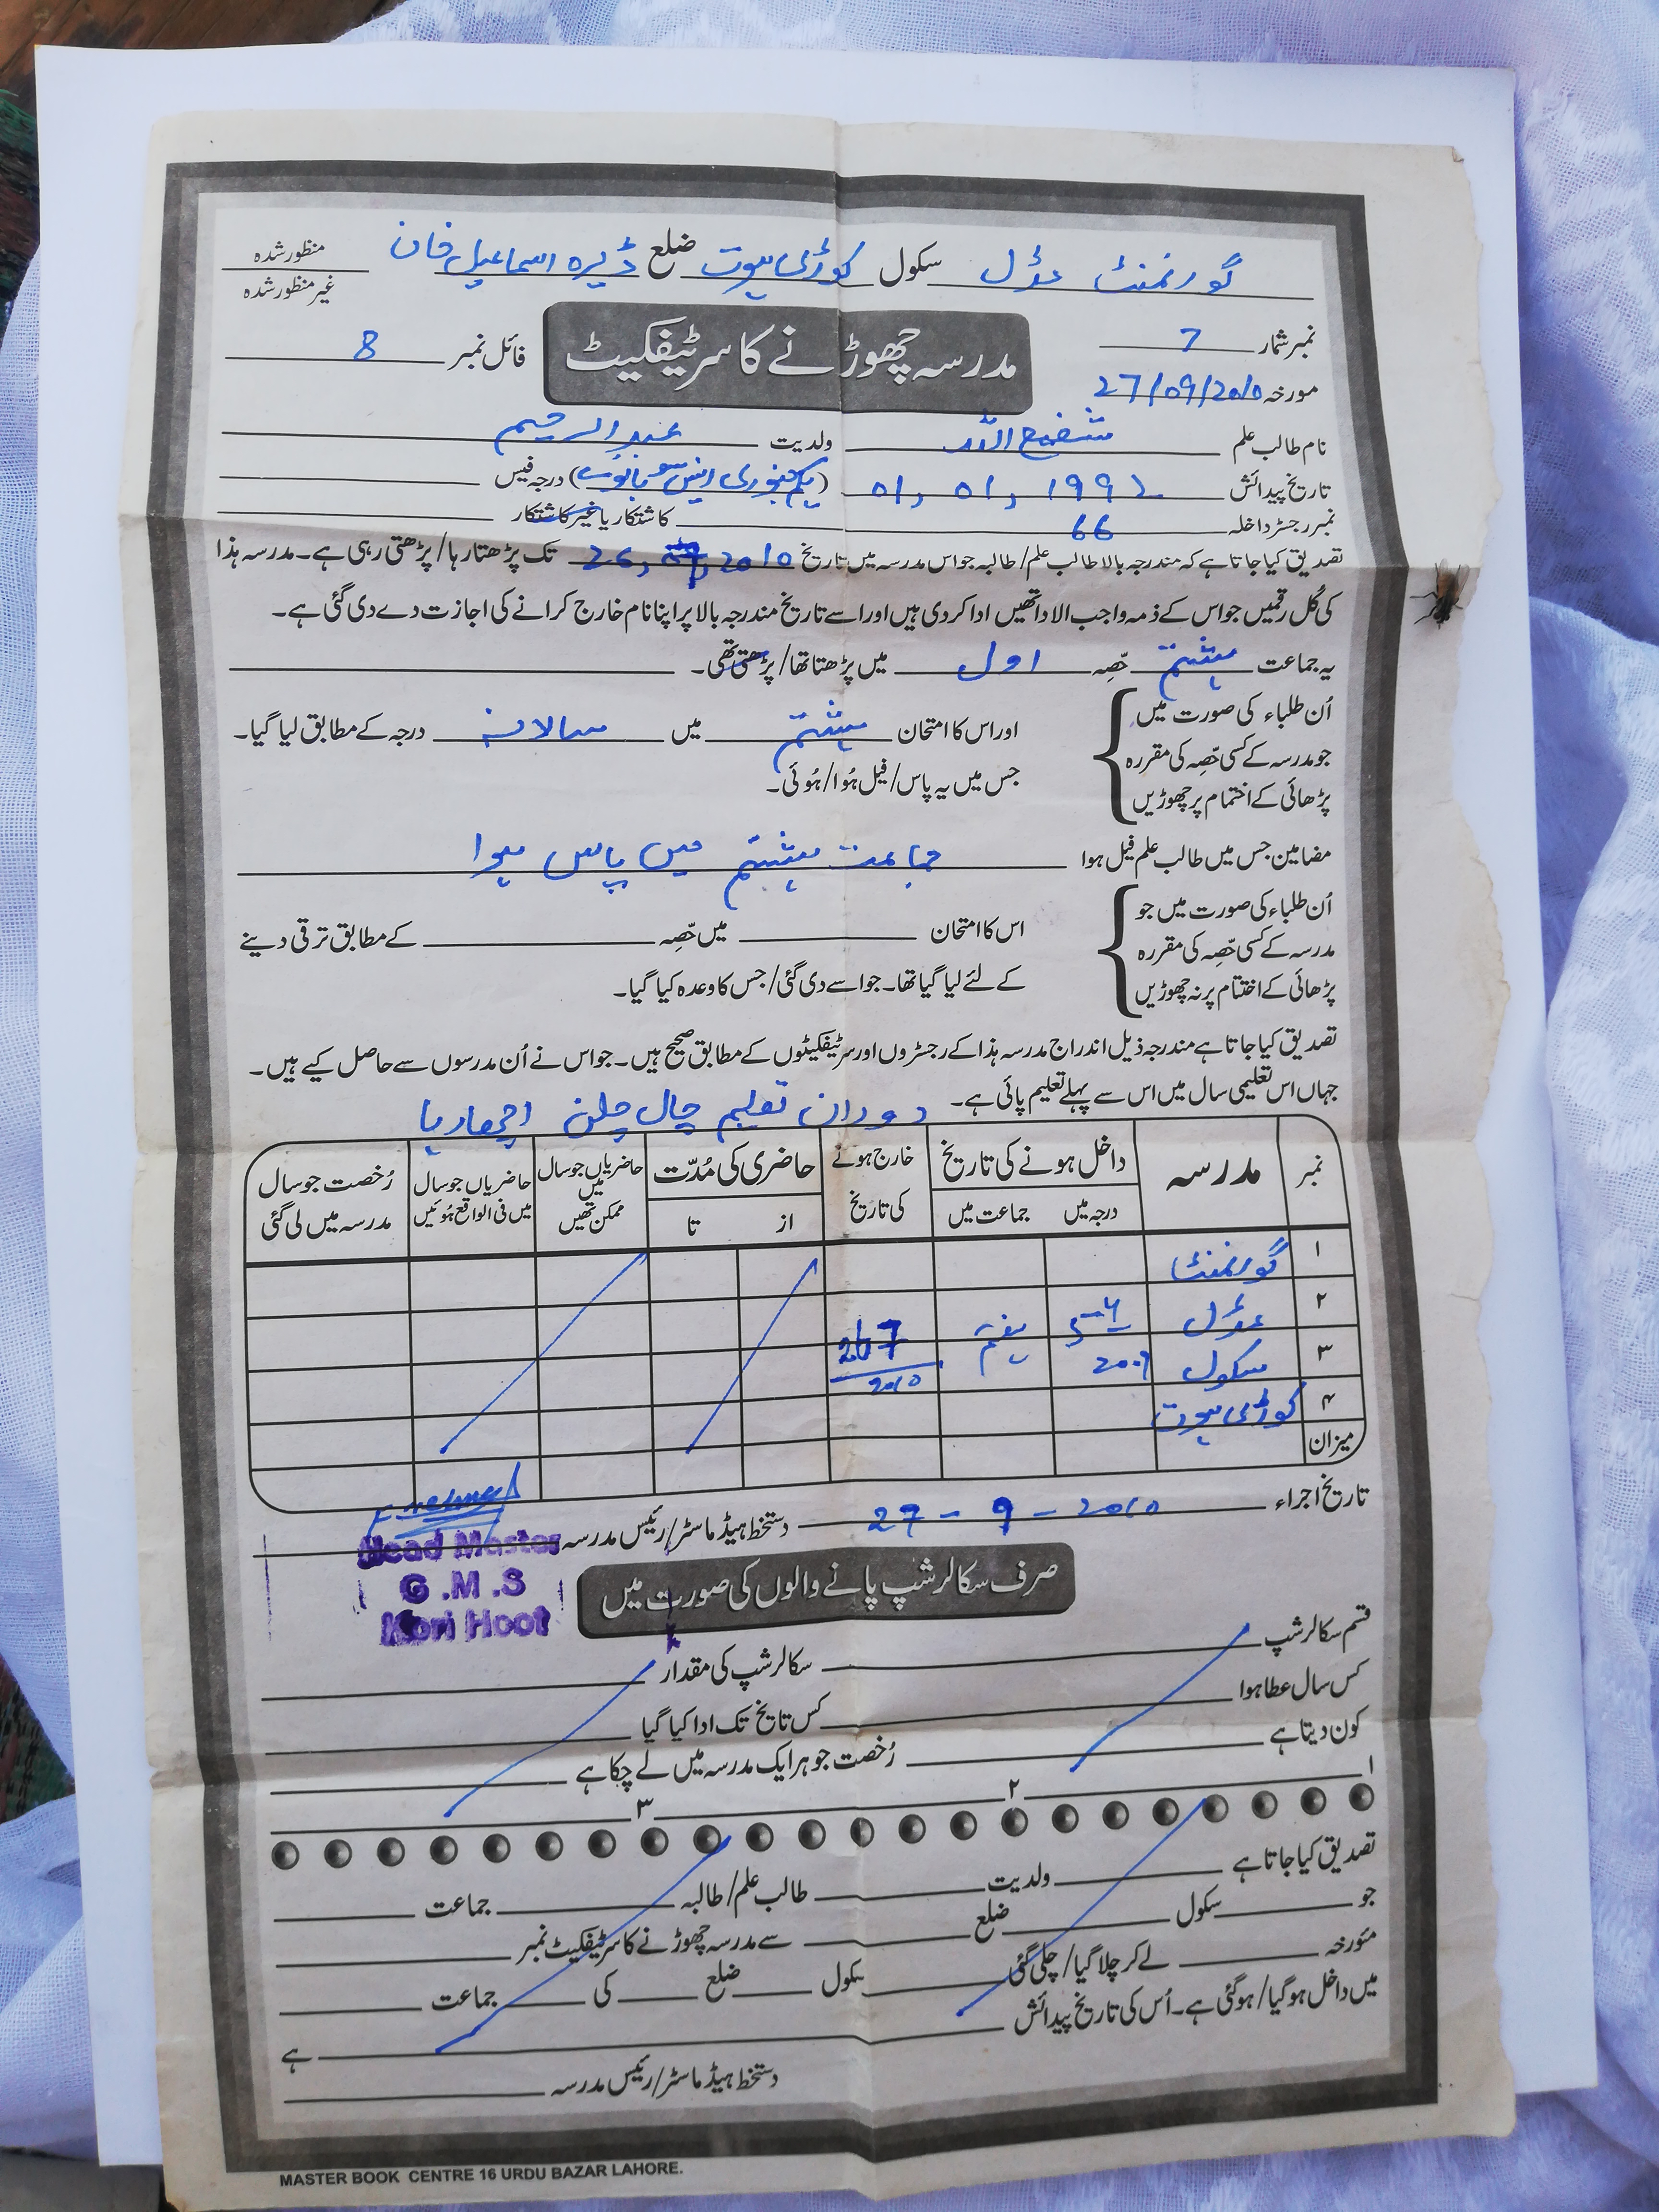 گورنمنٹ مڈل سکول کوڑی ہوت ضلع ڈیرہ اسماعیل خان
منظور شدہ
غیر منظور شدہ
نمبر شمار 7
مدرسہ چھوڑنے کا سرٹیفکیٹ
فائل نمبر 8
مورخہ 27/09/2010
نام طالب علم شفیع اللہ ولدیت عبدالرحیم
تاریخ پیدائش 01, 01, 1992 (یکم جنوری انیس سو بانوے) درجہ فیس
نمبر رجسٹر داخلہ 66 کاشتکار یا غیر کاشتکار
تصدیق کیا جاتا ہے کہ مندرجہ بالا طالب علم/طالبہ جو اس مدرسہ میں تاریخ 26, 2010 تک پڑھتا رہا/پڑھتی رہی ہے۔ مدرسہ ہذا
کی کُل رقمیں جو اس کے ذمہ واجب الادا تھیں ادا کر دی ہیں اور اسے تاریخ مندرجہ بالا پر اپنا نام خارج کرانے کی اجازت دے دی گئی ہے۔
یہ جماعت ہشتم حصّہ اول میں پڑھتا تھا/پڑھتی تھی۔
اُن طلباء کی صورت میں
جو مدرسہ کے کسی حصّہ کی مقررہ
پڑھائی کے اختمام پر چھوڑیں
اور اس کا امتحان ہشتم میں سالانہ درجہ کے مطابق لیا گیا۔
جس میں یہ پاس/فیل ہُوا/ہُوئی۔
مضامین جس میں طالب علم فیل ہوا جماعت ہشتم میں پاس ہوا
اُن طلباء کی صورت میں جو
مدرسہ کے کسی حصّہ کی مقررہ
پڑھائی کے اختتام پر نہ چھوڑیں
اس کا امتحان میں حصّہ کے مطابق ترقی دینے
کے لئے لیا گیا تھا۔ جو اسے دی گئی/جس کا وعدہ کیا گیا۔
تصدیق کیا جاتا ہے مندرجہ ذیل اندراج مدرسہ ہذا کے رجسٹروں اور سرٹیفکیٹوں کے مطابق صحیح ہیں۔ جو اس نے اُن مدرسوں سے حاصل کیے ہیں۔
جہاں اس تعلیمی سال میں اس سے پہلے تعلیم پائی ہے۔ دوران تعلیم چال چلن اچھا رہا
نمبر مدرسہ داخل ہونے کی تاریخ خارج ہونے کی تاریخ حاضری کی مُدّت حاضریاں جو سال میں ممکن تھیں حاضریاں جو سال میں فی الواقع ہُوئیں رُخصت جو سال مدرسہ میں لی گئی
درجہ میں جماعت میں از تا
۱ گورنمنٹ
۲ مڈل ہفتم
۳ سکول 2010
۴ کوڑی ہوت
میزان
تاریخ اجراء 27 - 9 - 2010 دستخط ہیڈ ماسٹر/رئیس مدرسہ
Head Master
G.M.S
Kori Hoot
صرف سکالرشپ پانے والوں کی صورت میں
قسم سکالرشپ سکالرشپ کی مقدار
کس سال عطا ہوا کس تاریخ تک ادا کیا گیا
کون دیتا ہے رُخصت جو ہر ایک مدرسہ میں لے چکا ہے
۱ ۲ ۳
تصدیق کیا جاتا ہے ولدیت طالب علم/طالبہ جماعت
جو سکول ضلع سے مدرسہ چھوڑنے کا سرٹیفکیٹ نمبر
مئورخہ لے کر چلا گیا/چلی گئی سکول ضلع کی جماعت
میں داخل ہو گیا/ہو گئی ہے۔ اُس کی تاریخ پیدائش ہے
دستخط ہیڈ ماسٹر/رئیس مدرسہ
MASTER BOOK CENTRE 16 URDU BAZAR LAHORE.